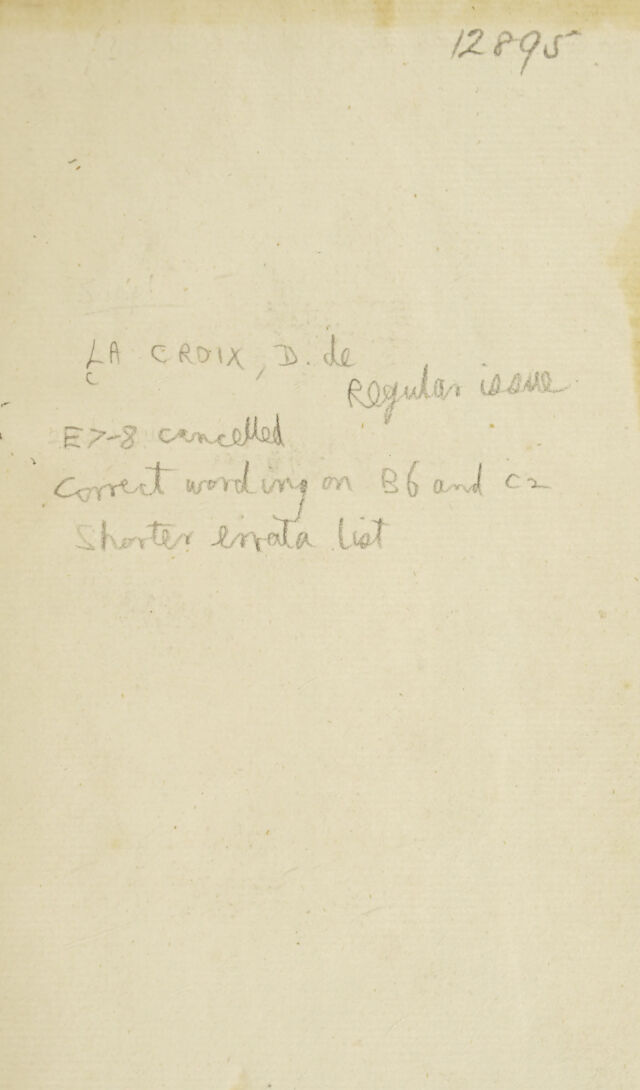 12895
LA CROIX, D. de
c
Regular issue
E7-8 cancelled
Correct wording on B6 and C2
Shorter errata list